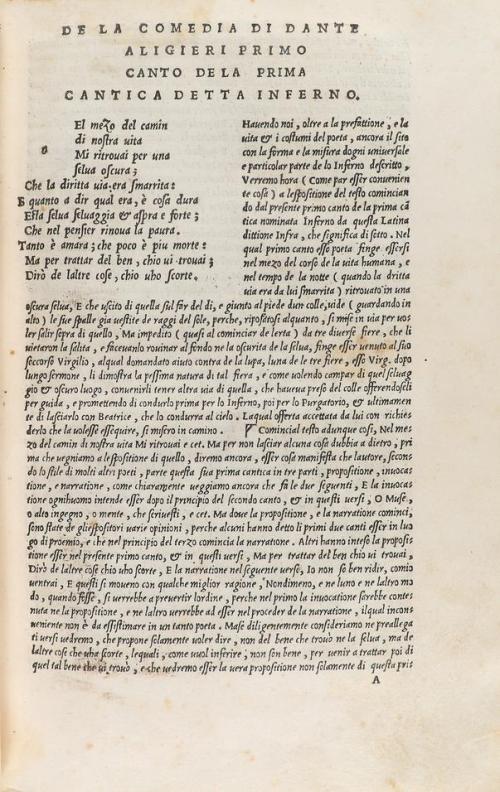 DE LA COMEDIA DI DANTE
ALIGIERI PRIMO
CANTO DE LA PRIMA
CANTICA DETTA INFERNO.
El mezo del camin
di nostra uita
Mi ritrouai per una
selua oscura;
Che la diritta uia era smarrita:
E quanto a dir qual era, è cosa dura
Esta selua seluaggia & aspra e forte;
Che nel pensier rinoua la paura.
Tanto è amara; che poco è piu morte:
Ma per trattar del ben, chio ui trouai;
Dirò de laltre cose, chio uho scorte.
Hauendo noi, oltre a la prefattione, e la
uita & i costumi del poeta, ancora il sito
con la forma e la misura dogni uniuersale
e particolar parte de lo Inferno descritto,
Verremo hora (Come par esser conuenien
te cosa) a lespositione del testo comincian
do dal presente primo canto de la prima cã
tica nominata Inferno da questa Latina
dittione Infra, che significa di sotto. Nel
qual primo canto esso poeta finge essersi
nel mezo del corso de la uita humana, e
nel tempo de la notte (quando la dritta
uia era da lui smarrita) ritrouato in una
oscura selua, E che uscito di quella sul far del di, e giunto al piede dun colle, uide (guardando in
alto) le sue spalle gia uestite de raggi del sole, perche, ripostosi alquanto, si mise in uia per uo=
ler salir sopra di quello, Ma impedito (quasi al cominciar de lerta) da tre diuerse fiere, che li
uietaron la salita, e faceuanlo rouinar al fondo ne la oscurita de la selua, finge esser uenuto al suo
soccorso Virgilio, alqual domandato aiuto contra de la lupa, luna de le tre fiere, esso Virg. dopo
lungo sermone, li dimostra la pessima natura di tal fiera, e come uolendo campar di quel seluag
gio & oscuro luogo, conuernirli tenere altra uia di quella, che haueua preso del colle offerendoseli
per guida, e promettendo di condurlo prima per lo Inferno, poi per lo Purgatorio, & ultimamen
te di lasciarlo con Beatrice, che lo condurra al cielo. Laqual offerta accettata da lui con richie=
derlo che la uolesse esseguire, si misero in camino. Comincial testo adunque cosi, Nel me=
zo del camin di nostra uita Mi ritrouai e cet. Ma per non lasciar alcuna cosa dubbia a dietro, pri
ma che uegniamo a lespositione di quello, diremo ancora, esser cosa manifesta che lautore, secon=
do lo stile di molti altri poeti, parte questa sua prima cantica in tre parti, propositione, inuoca=
tione, e narratione, come chiaramente ueggiamo ancora che fa le due seguenti, E la inuoca=
tione ognihuomo intende esser dopo il principio del secondo canto, & in questi uersi, O Muse,
o alto ingegno, o mente, che scriuesti, e cet. Ma doue la propositione, e la narratione cominci,
sono state de gliespositori uarie opinioni, perche alcuni hanno detto li primi due canti esser in luo
go di proemio, e che nel principio del terzo comincia la narratione. Altri hanno inteso la proposi=
tione esser nel presente primo canto, & in questi uersi, Ma per trattar del ben chio ui trouai,
Dirò de laltre cose chio uho scorte, E la narratione nel seguente uerso, Io non so ben ridir, comio
uentrai, E questi si moueno con qualche miglior ragione, Nondimeno, e ne luno e ne laltro mo
do, quando fosse, si uerrebbe a preuertir lordine, perche nel primo la inuocatione sarebbe conte=
nuta ne la propositione, e ne laltro uerrebbe ad esser nel proceder de la narratione, ilqual incon=
ueniente non è da essistimare in un tanto poeta. Ma se diligentemente consideriamo ne preallega
ti uersi uedremo, che propone solamente uoler dire, non del bene che trouò ne la selua, ma de
laltre cose che uha scorte, lequali, come uuol inferire, non son bene, per uenir a trattar poi di
quel tal bene che ui trouò, e che uedremo esser la uera propositione non solamente di questa pri=
A